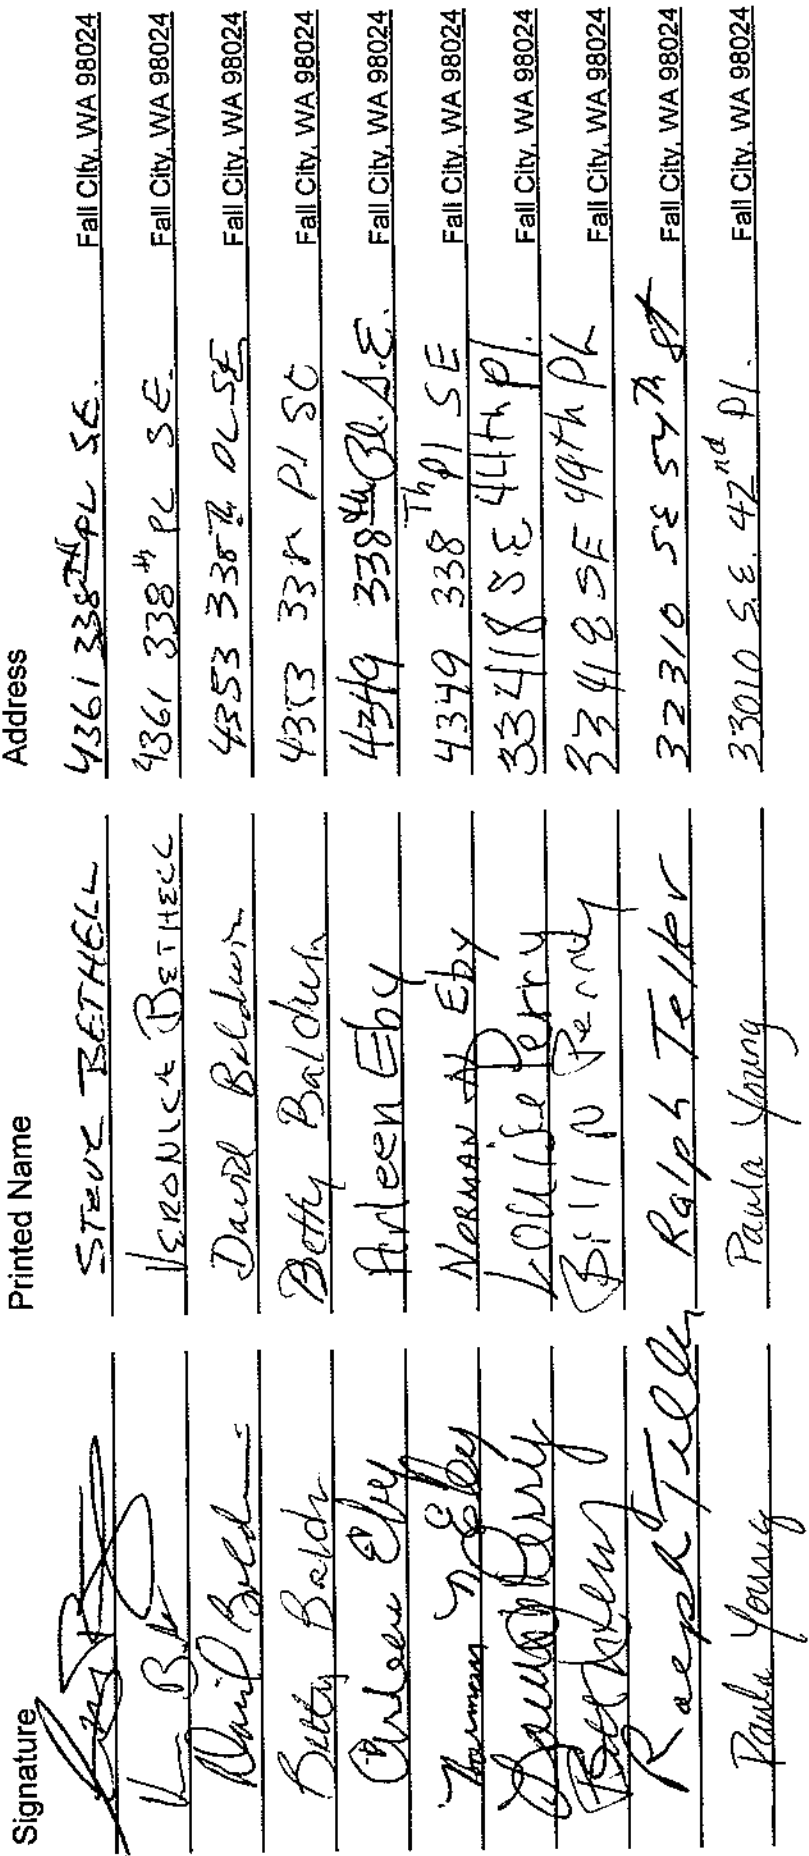 Signature Printed Name Address
STEVE BETHELL 4361 338TH PL SE. Fall City, WA 98024
VERONICA BETHELL 4361 338th PL SE. Fall City, WA 98024
David Baldwin David Baldwin 4353 338Th PL SE Fall City, WA 98024
Betty Baldn Betty Baldwin 4353 338 Pl SE Fall City, WA 98024
Arleen Eby Arleen Eby 4349 338th Pl. S.E. Fall City, WA 98024
Norman N Eby NORMAN N Eby 4349 338Th Pl SE Fall City, WA 98024
Louise Perry Louise Perry 33418 S.E 44th Pl. Fall City, WA 98024
Bill N Perry 33418 SE 44th PL Fall City, WA 98024
Ralph Teller Ralph Teller 32310 SE 54Th St Fall City, WA 98024
Paula Young Paula Young 33010 S.E. 42nd Pl. Fall City, WA 98024